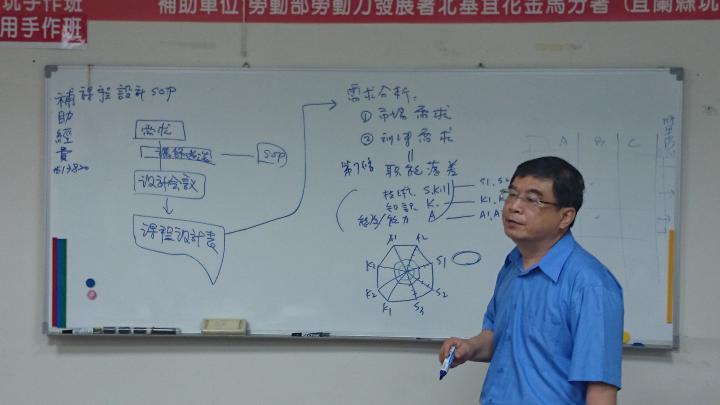 坑手作班
用手作班
補助單位 勞動部勞動力發展署北基宜花金馬分署（宜蘭縣坑
補助經費
課程設計SOP
需求
SOP
設計會議
課程設計表
需求分析：
① 市場需求
② 訓練需求
職能落差
技能 S.Kill
知識 K.
能力 A
S1, S
K1, K
A1, A
A1
A2
K3
S1
K2
S2
K1
S3
A
B
C